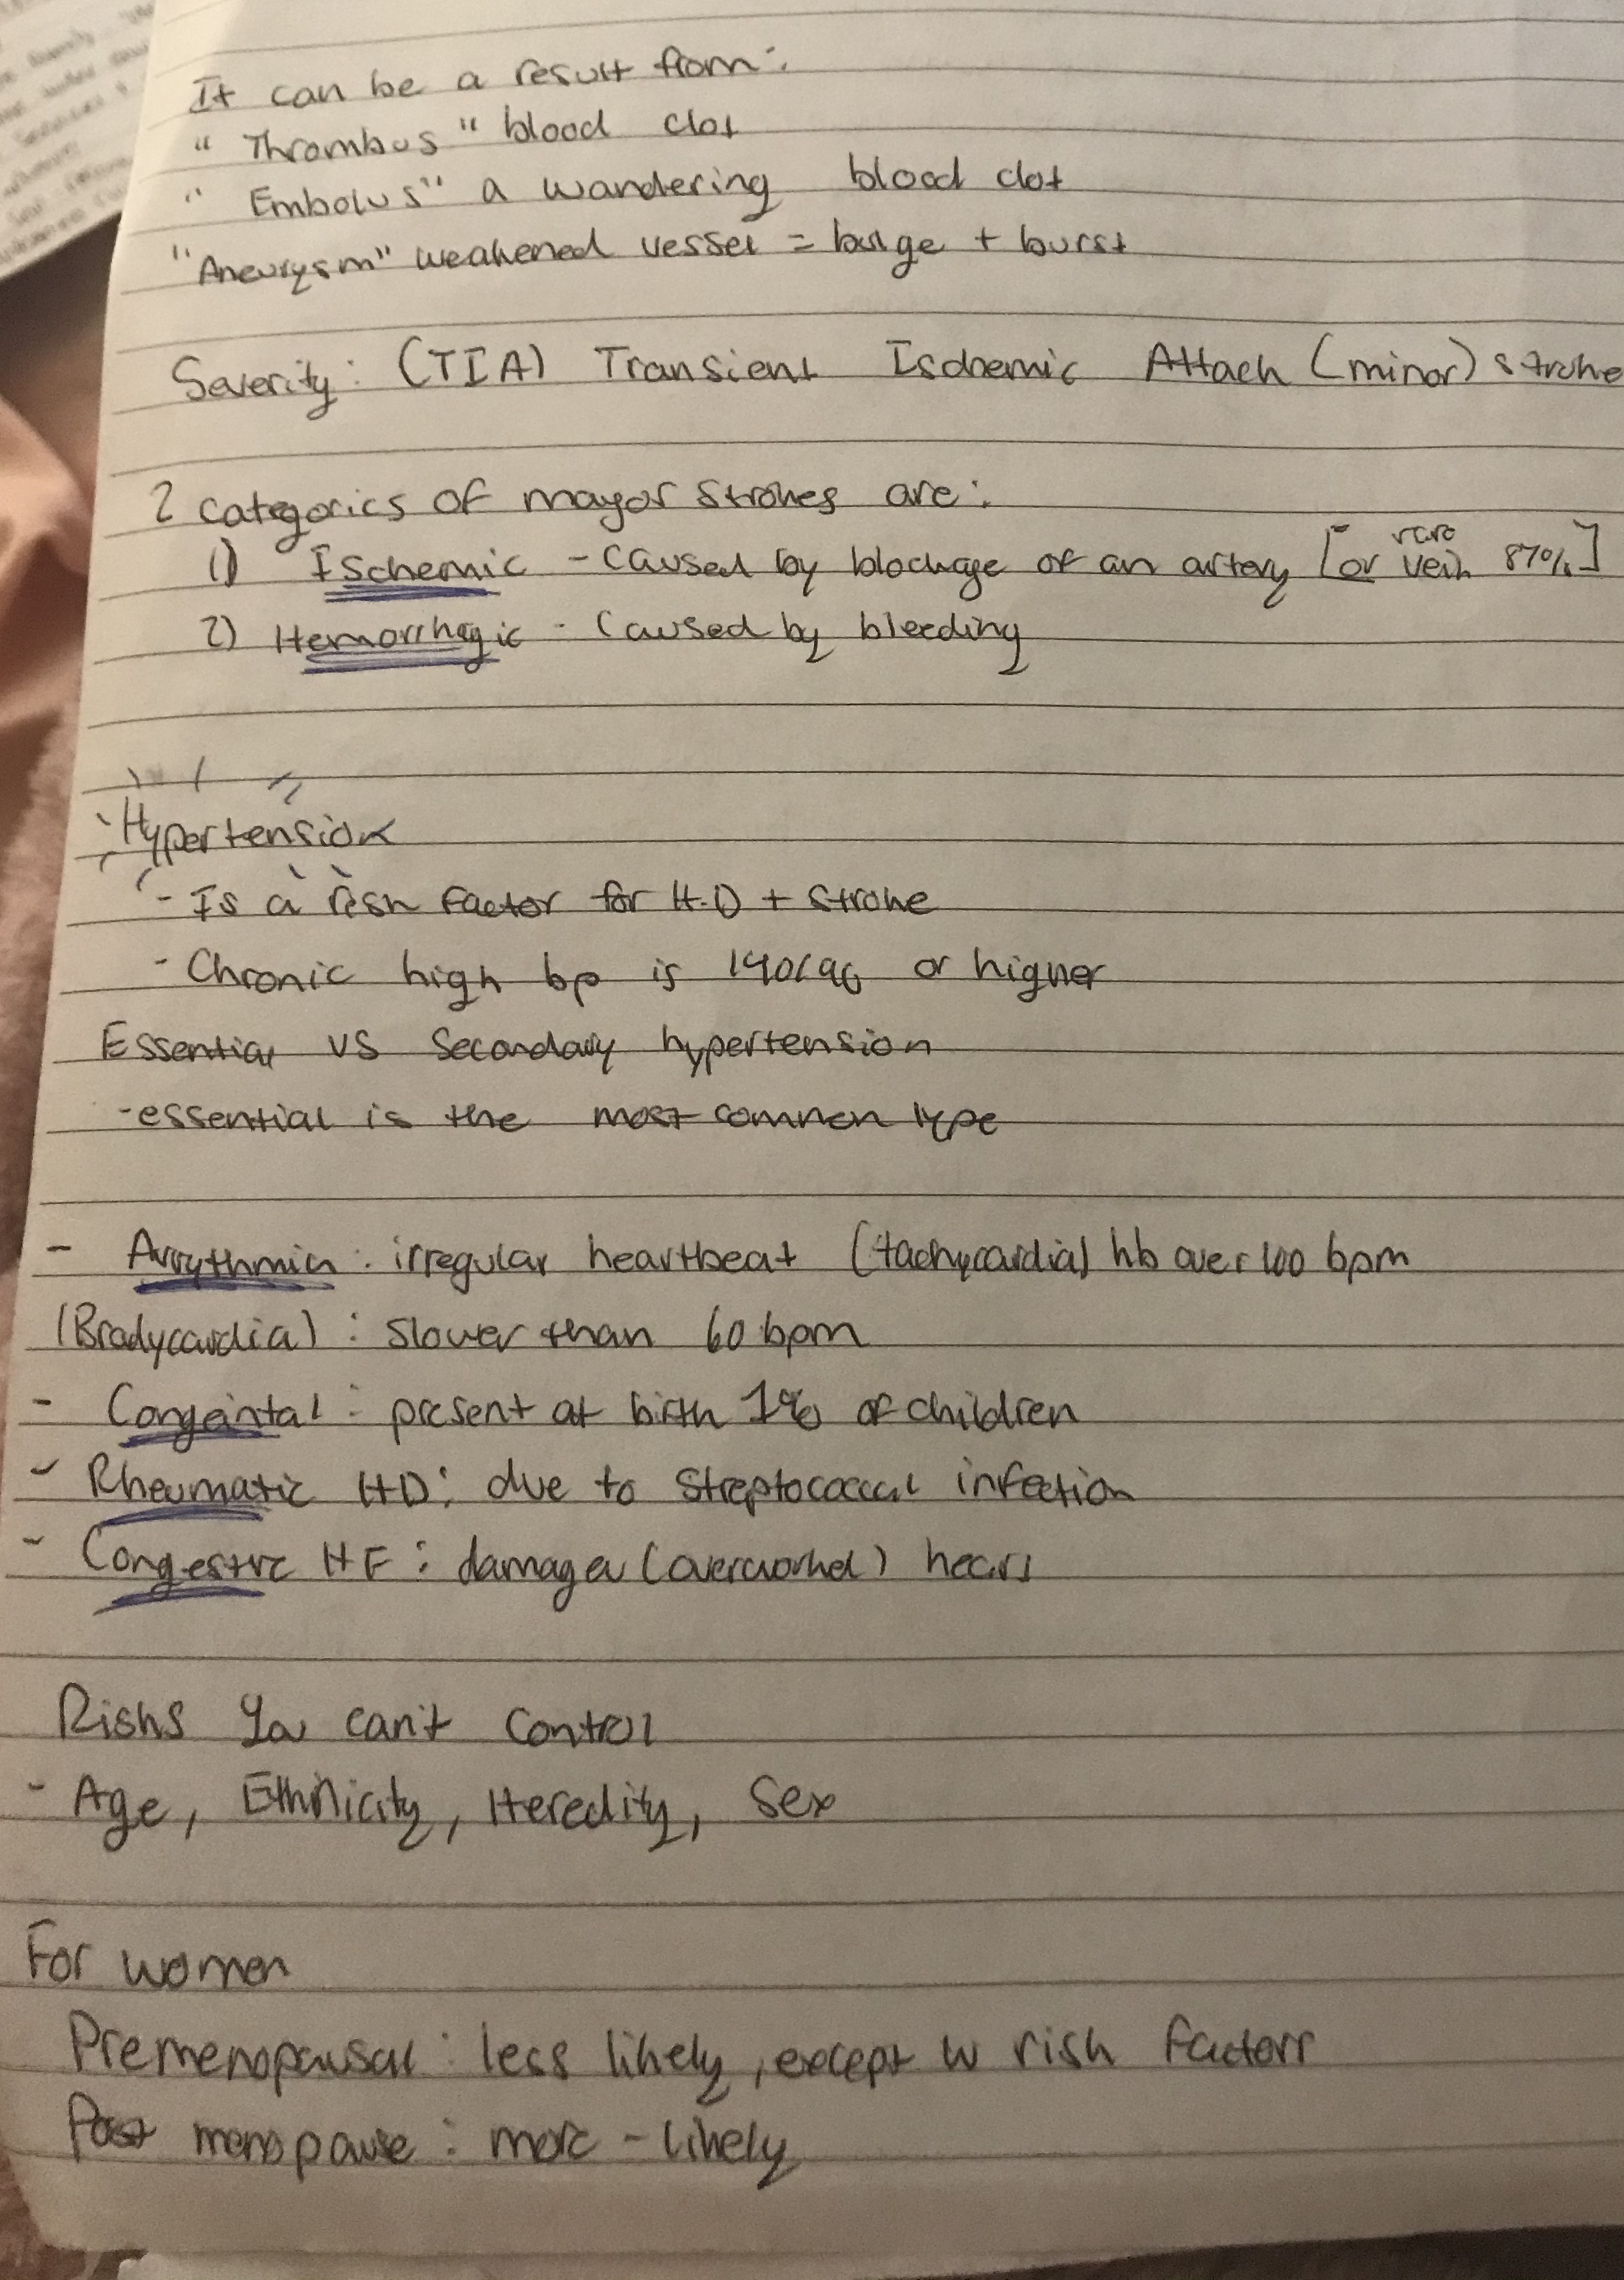 It can be a result from:
" Thrombus " blood clot
" Embolus" a wandering blood clot
"Aneurysm" weakened vessel = bulge + burst
Severity: (TIA) Transient Ischemic Attack (minor) stroke
2 categories of mayor strokes are:
1) Ischemic - caused by blockage of an artery [or rare vein 87%]
2) Hemorrhagic - caused by bleeding
Hypertension
- Is a risk factor for H.D + stroke
- Chronic high bp is 140/90 or higher
Essential vs Secondary hypertension
- essential is the most common type
- Arrythmia : irregular heartbeat (tachycardia) hb over 100 bpm
(Bradycardia) : slower than 60 bpm
- Congeintal : present at birth 1% of children
- Rheumatic HD: due to streptococcal infection
- Congestive HF : damage (overworked) heart
Risks you can't control
- Age, Ethnicity, Heredity, Sex
For women
Premenopausal : less likely, except w risk factors
Post menopause : more - likely